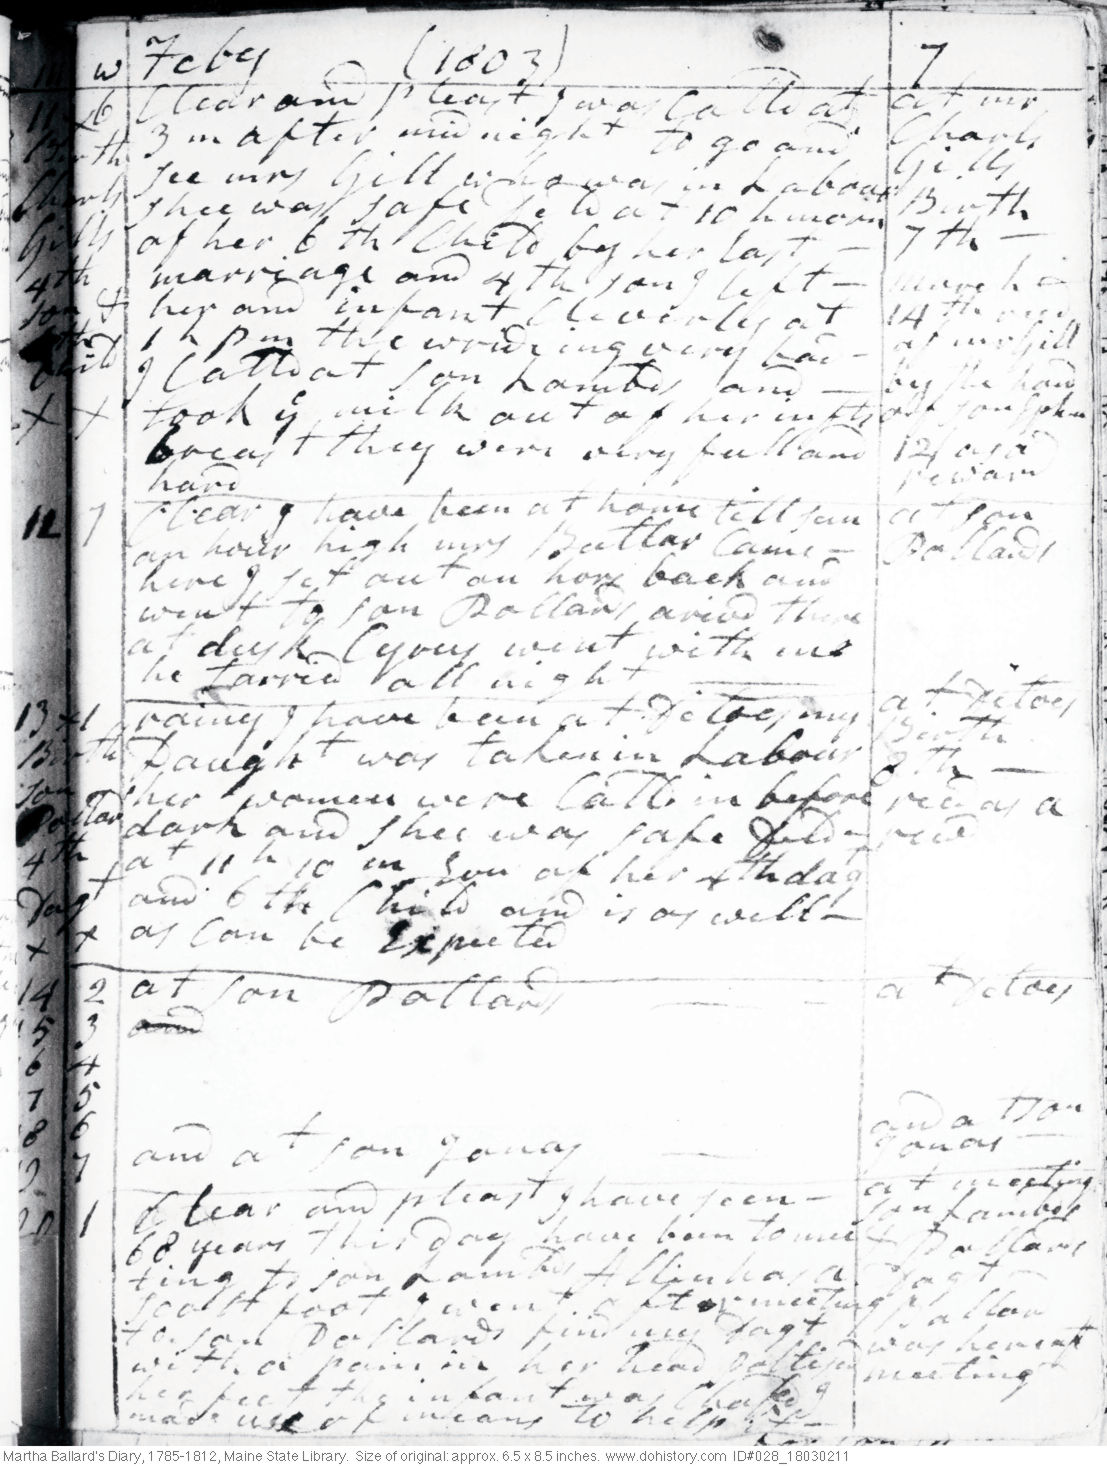 m w Feby (1803) 7
11 6
Birth
Charls
Gills
4th
son &
6th
Child
x x
Clear and pleast I was Calld at
3 m after mid night to go and
see mrs Gill who was in Labour
shee was safe Deld at 10 h morn
of her 6 th Child by her last –
marriage and 4 th son I left –
her and infant Cleverly at
1 h pm the wrideing very bad –
I Calld at son Lambds and –
took ye milk out of her
breast they were very full and
hard
at mr
Charls
Gills
Birth
7 th –
march –
14th recd
of mr Gill
by the hand
of son Ephm
12/ as a
reward
12 7
Clear I have been at home till sun
an hour high mrs Butlar Came –
here I set out on hors back and
went to son Pollards arivd there
at dusk Cyrus went with me
he tarried all night
at son
Pollards
13 x 1
Birth
son
Pollard
4th
Dagt
x x
rainy I have been at Ditoes my
Daught was taken in Labour
her women were Calld in before
dark and shee was safe Deld –
at 11 h 10 m Son of her 4th dagt
and 6 th Child and is as well –
as Can be Expected
at Ditoes
Birth
8 th –
recd as a
rewd
14 2
at son Pollards
at Ditoes
15 3
and
6 4
7 5
8 6
and at son Jonas
and at son
Jonas –
9 7
20 1
Clear and pleast I have seen –
68 years this day have been to mee
ting to son Lambds Allin has a
scalt foot I went after meeting
to son Pollards find my Dagt
with a pain in her head
her feet the infant was Chafed I
made use of means to help it –
at meeting
son Lambds
& Pollards
Dagt
Pollard
was here at
meeting
Martha Ballard's Diary, 1785-1812, Maine State Library. Size of original: approx. 6.5 x 8.5 inches. www.dohistory.com ID#028_18030211